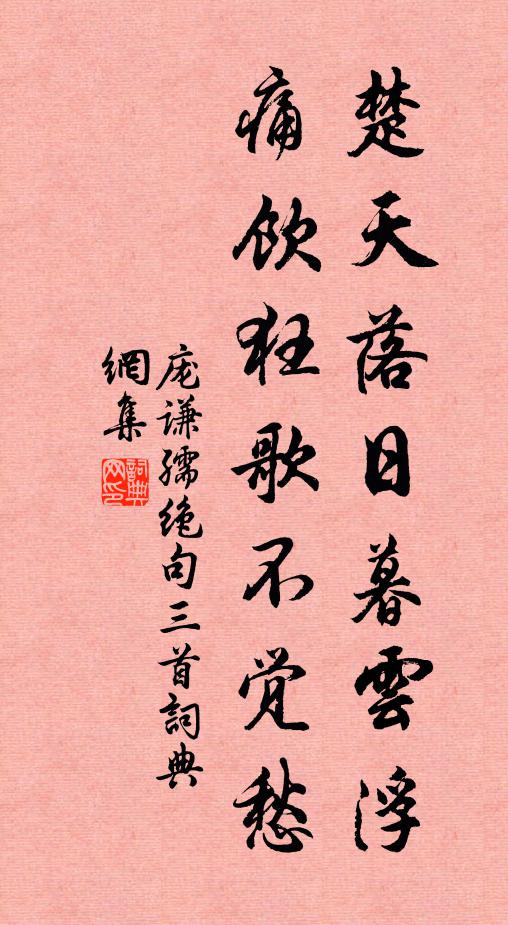 楚天落日暮雲浮
痛飲狂歌不觉愁
庞谦孺绝句三首詞典
網集
詞典
网印